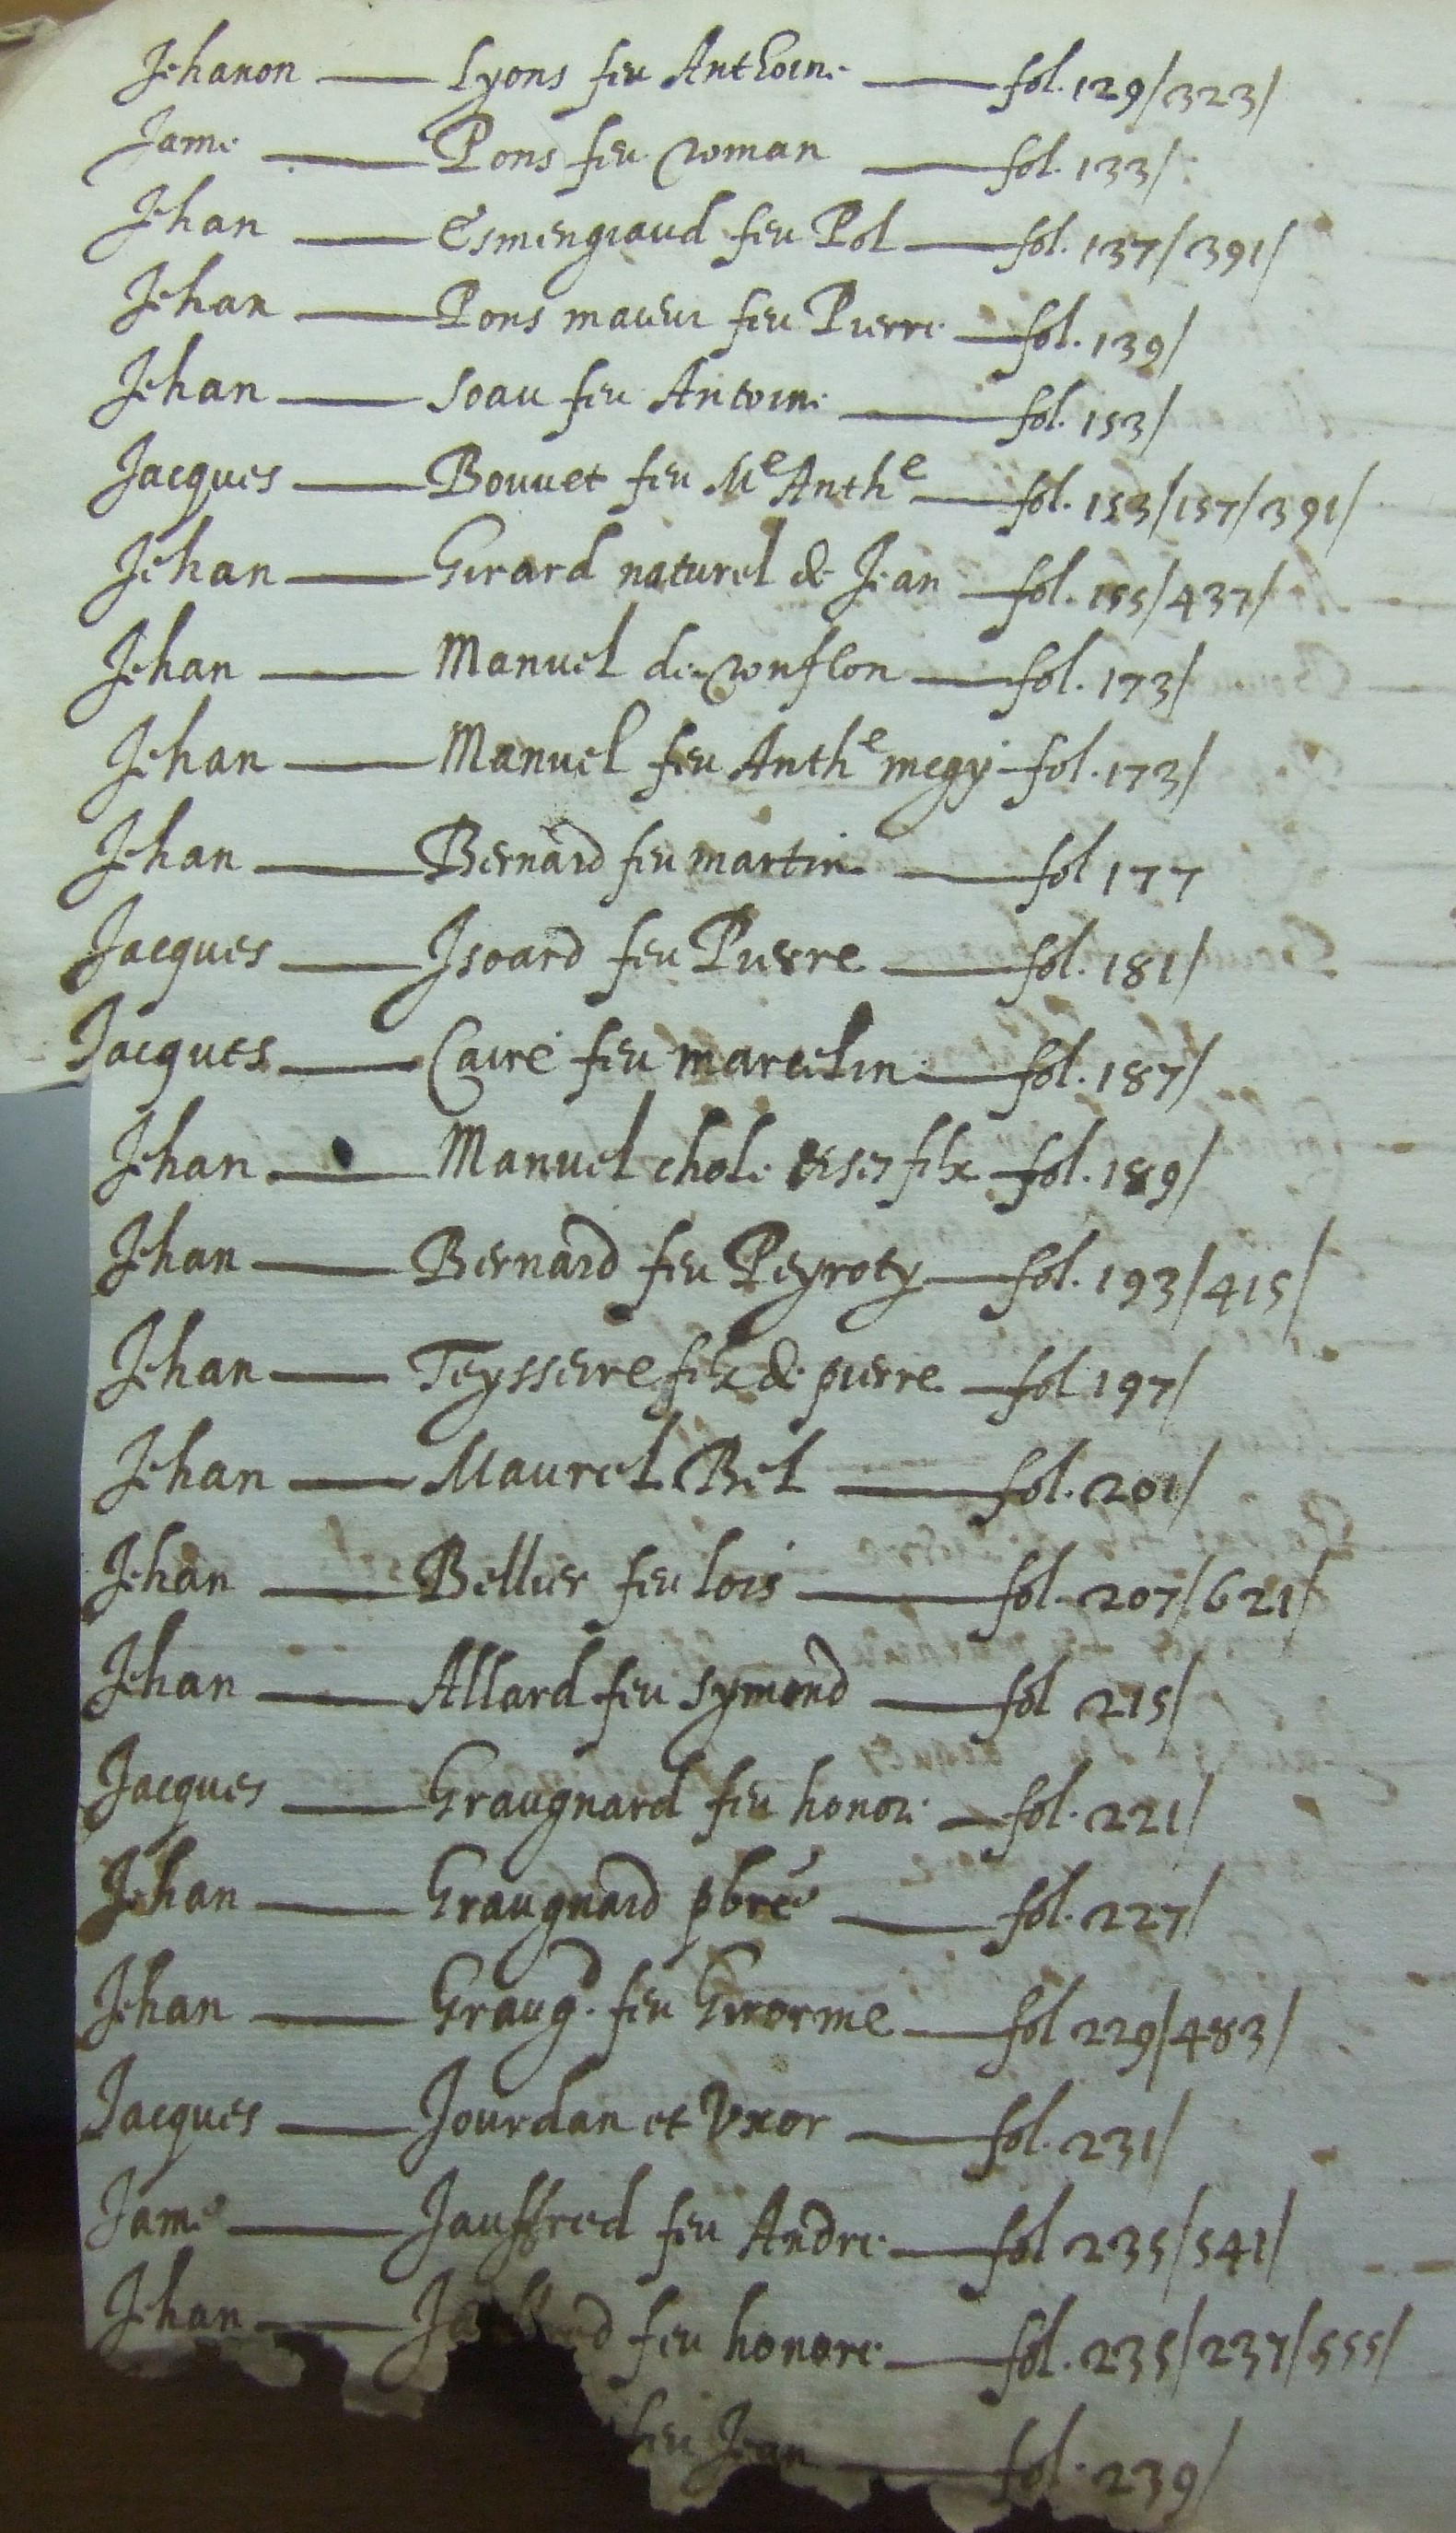 Jehanon — Lyons feu Anthoine — fol. 129/323/
Jame — Pons feu roman — fol. 133/
Jehan — Esmengiaud feu Pol — fol. 137/391/
Jehan — Pons maeur feu Pierre — fol. 139/
Jehan — Soau feu Antoine — fol. 153/
Jacques — Bouuet feu Me Anthe — fol. 153/157/391/
Jehan — Girard naturel de Jean — fol. 155/437/
Jehan — Manuel de ronflon — fol. 173/
Jehan — Manuel feu Anthe megy — fol. 173/
Jehan — Bernard feu martin — fol 177
Jacques — Isoard feu Pierre — fol. 181/
Jacques — Caire feu marcelin — fol. 187/
Jehan — Manuel chole et ses filz fol. 189/
Jehan — Bernard feu Peyroty — fol. 193/415/
Jehan — Teysseire filz de pierre — fol 197/
Jehan — Maurel Bel — fol. 201/
Jehan — Bellier feu lois — fol. 207/621/
Jehan — Allard feu symond — fol 215/
Jacques — Graugnard feu honore — fol. 221/
Jehan — Graugnard pbre — fol. 227/
Jehan — Graugd. feu Girorme — fol 229/483/
Jacques — Jourdan et Uxor — fol. 231/
Jame — Jauffred feu Andre — fol 235/541/
Jehan — feu honore — fol. 235/237/555/
feu Jean — fol. 239/